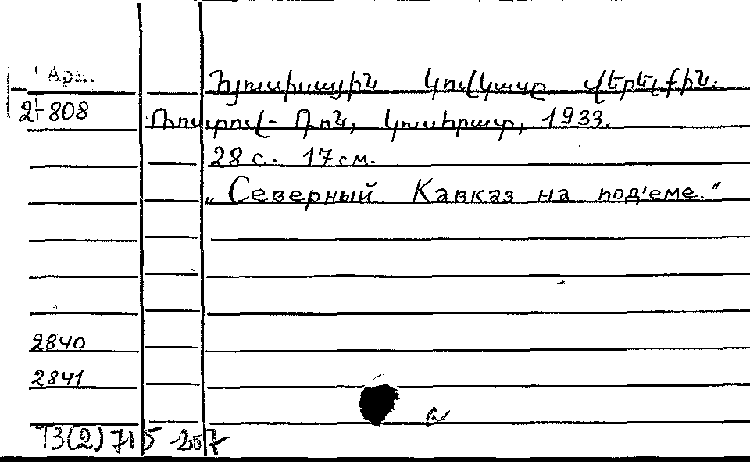 Арм.
2-808
Հյուսիսային Կովկասը վերելքին.
Ռոստով-Դոն, կուսհրատ, 1933.
28 с. 17 см.
„Северный Кавказ на под'еме."
2840
2841
Т3(2)715